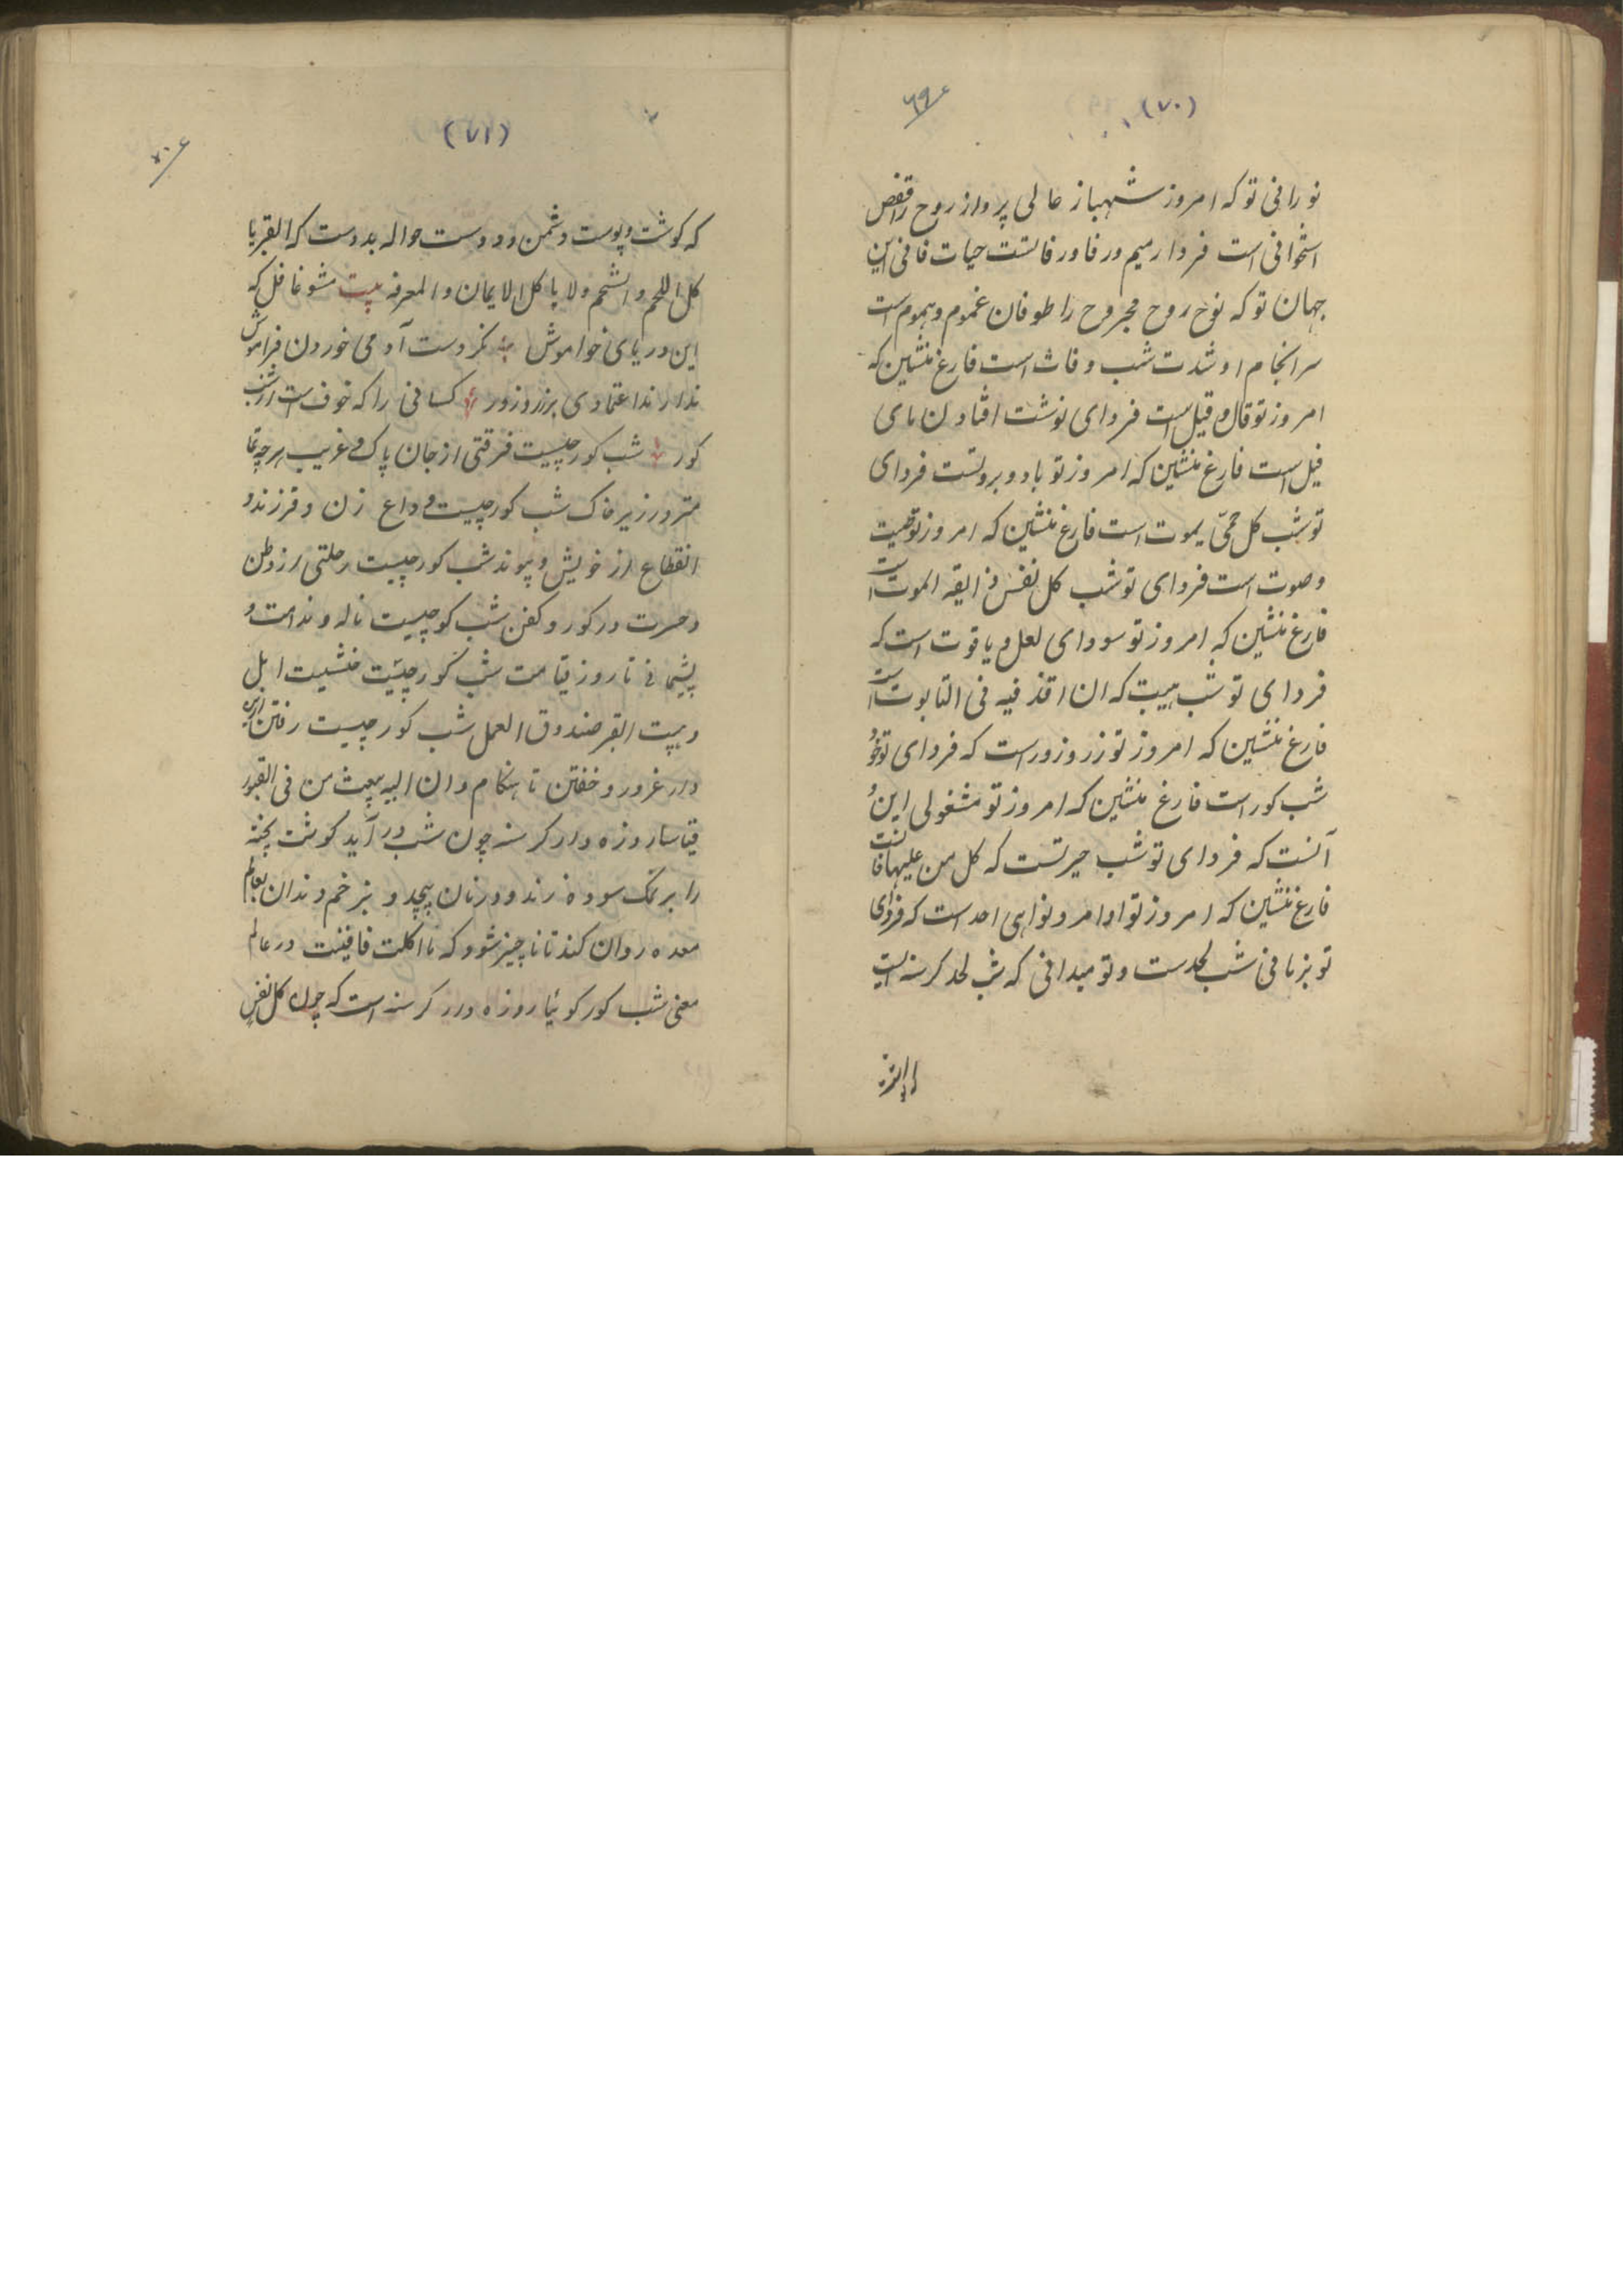 (۷۰)
۶۹
نورانی تو که امروز شهباز عالی پرواز روح را قفص
استخوانی است فردا رمیم و رفا و رفاتست حیات فانی این
جهان تو که نوح روح مجروح را طوفان غموم و هموم است
سرانجام او شدت شب وفات است فارغ منشین که
امروز تو قال و قیل است فردای نوشت افتادن بای
فیل است فارغ منشین که امروز تو باد و بروتست فردای
تو شب کل حیّ یموت است فارغ منشین که امروز تو صیت
و صوت است فردای تو شب کل نفس ذایقه الموت است
فارغ منشین که امروز تو سودای لعل و یاقوت است که
فردای تو شب هیبت که ان اقذفیه فی التابوت است
فارغ منشین که امروز تو زر و زور است که فردای تو خود
شب کور است فارغ منشین که امروز تو مشغولی این و
آنست که فردای تو شب حیرتست که کل من علیها فانست
فارغ منشین که امروز تو اوامر و نواهی احد است که فردای
تو بزبانی شب لحدست و تو میدانی که شب لحد کرسنه ایست
(۷۱)
۷۰
که کوشت و پوست دشمن و دوست حواله بدوست که القبر یا
کل اللحم و الشحم و لا یاکل الایمان و المعرفه بیت مشو غافل که
این دریای خواموش نکردست آدمی خوردن فراموش
ندارند اعتمادی بر زر و زور کسانی را که خوف است از شب
کور شب کور چیست فرقتی از جان پاک و غریب هرچه تما
متر در زیر خاک شب کور چیست وداع زن و فرزند و
انقطاع از خویش و پیوند شب کور چیست رحلتی از وطن
و حسرت در کور و کفن شب کور چیست ناله و ندامت و
پشیمانی تا روز قیامت شب کور چیست خشیت اجل
و هیبت القبر صندوق العمل شب کور چیست رفتن ازین
دار غرور و خفتن تا هنکام و ان الله یبعث من فی القبور
قیاسا روزه دار کرسنه چون شب در آید کوشت پخته
را بر نمک سوده زند و در نان پیچد و بزخم دندان بعالم
معده روان کند تا ناچیز شود که ما اکلت فافنیت در عالم
معنی شب کور کوئیا روزه دار کرسنه است که چون کل نفس